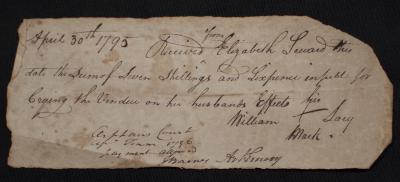 April 30th 1795 Received from Elizabeth Seward this
date the Sum of Seven Shillings and Sixpence in full for
Crying the Vendue on his husbands Effects his
William Lacy
Mark
Orphans Court
Term 1796
payment allowed